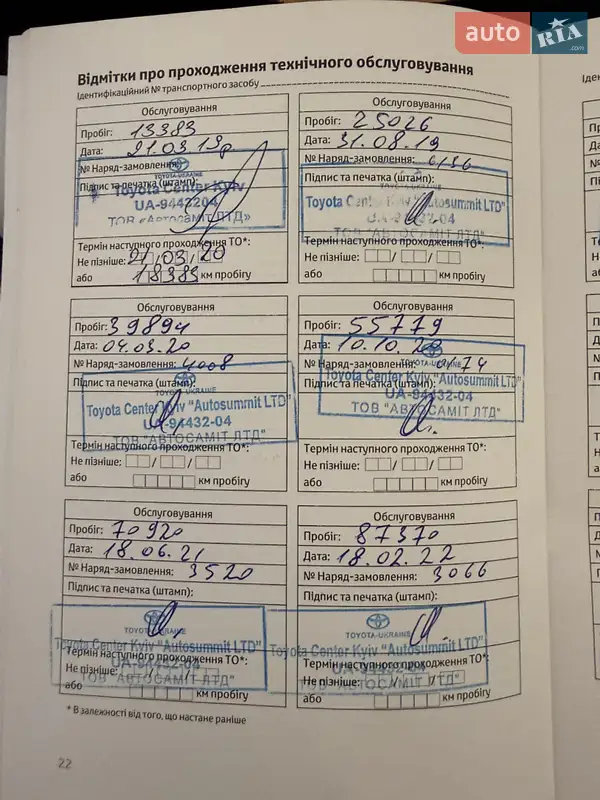 auto RIA .com
Відмітки про проходження технічного обслуговування
Ідентифікаційний № транспортного засобу
Обслуговування
Пробіг: 13383
Дата: 21.03.19р
№ Наряд-замовлення:
Підпис та печатка (штамп):
TOYOTA-UKRAINE
Toyota Center Kyiv
UA-9443204
ТОВ «Автосаміт ЛТД»
Термін наступного проходження ТО*:
Не пізніше: 21/03/20
або 18383 км пробігу
Обслуговування
Пробіг: 25026
Дата: 31.08.19
№ Наряд-замовлення: 6136
Підпис та печатка (штамп):
TOYOTA-UKRAINE
Toyota Center Kyiv "Autosummit LTD"
UA-94432-04
ТОВ "АВТОСАМІТ ЛТД"
Термін наступного проходження ТО*:
Не пізніше: / /
або км пробігу
Обслуговування
Пробіг: 39894
Дата: 04.03.20
№ Наряд-замовлення: 4008
Підпис та печатка (штамп):
TOYOTA-UKRAINE
Toyota Center Kyiv "Autosummit LTD"
UA-94432-04
ТОВ "АВТОСАМІТ ЛТД"
Термін наступного проходження ТО*:
Не пізніше: / /
або км пробігу
Обслуговування
Пробіг: 55779
Дата: 10.10.20
№ Наряд-замовлення: 0174
Підпис та печатка (штамп):
TOYOTA-UKRAINE
Toyota Center Kyiv "Autosummit LTD"
UA-94432-04
ТОВ "АВТОСАМІТ ЛТД"
Термін наступного проходження ТО*:
Не пізніше: / /
або км пробігу
Обслуговування
Пробіг: 70920
Дата: 18.06.21
№ Наряд-замовлення: 3520
Підпис та печатка (штамп):
TOYOTA-UKRAINE
Toyota Center Kyiv "Autosummit LTD"
Термін наступного проходження ТО*:
UA-94432-04
Не пізніше: / /
ТОВ "АВТОСАМІТ ЛТД"
або км пробігу
Обслуговування
Пробіг: 87370
Дата: 18.02.22
№ Наряд-замовлення: 3066
Підпис та печатка (штамп):
TOYOTA-UKRAINE
Toyota Center Kyiv "Autosummit LTD"
Термін наступного проходження ТО*:
UA-94432-04
Не пізніше: / /
ТОВ "АВТОСАМІТ ЛТД"
або км пробігу
* В залежності від того, що настане раніше
22